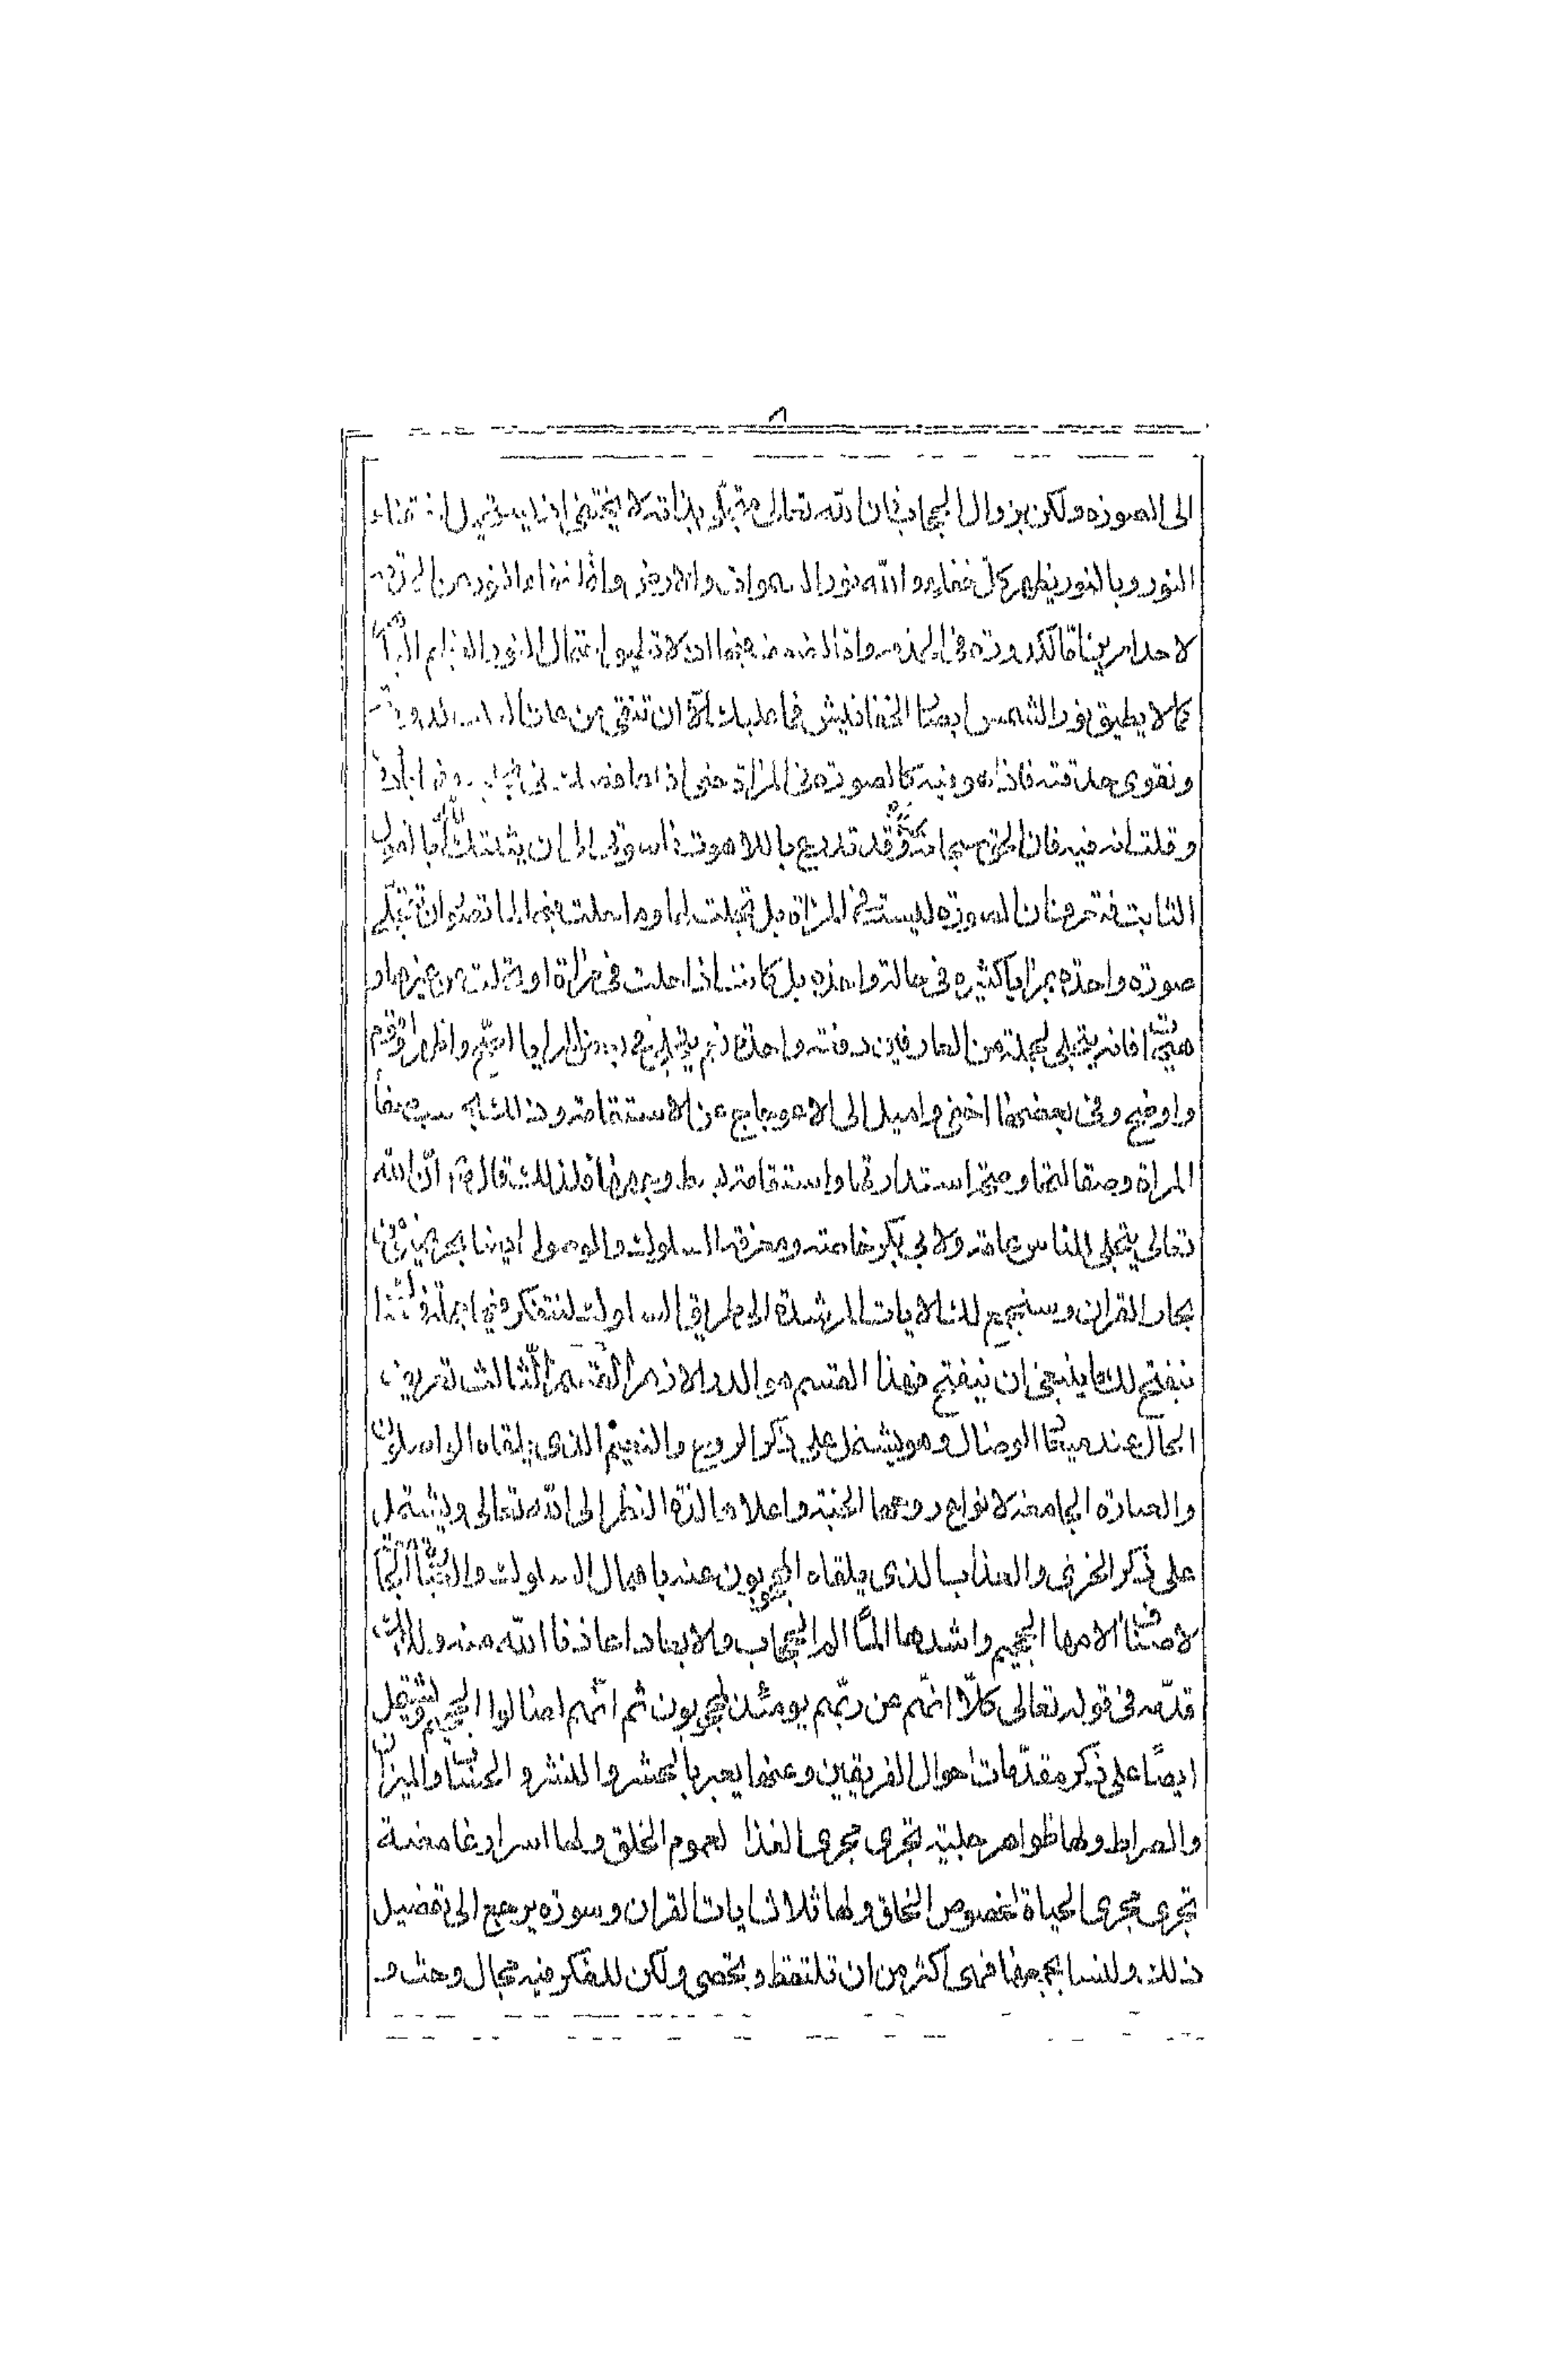 ٨
الى الصورة ولكن بزوال الحجاب فان الله تعالى متجلّ بذاته لا يختفى اذ يستحيل اختفاء
النور وبالنور يظهر كلّ خفاء والله نور السموات والارض وانّما خفاء النور من الحدقة
لاحد امرين امّا لكدورة فى الحدقة وامّا لضعف فيها اذ لا تطيق احتمال النور العظيم الباهر
كما لا يطيق نور الشمس ابصار الخفافيش فما عليك الّا ان تنقى عن عين القلب كدورته
وتقوى حدقته فاذا هو فيه كالصورة فى المرآة حتى اذا غافصك فى تجليه فيها بادرت
وقلت انه فيه وقد تدرع باللاهوت ناسوتى الى ان يثبتك الله بالقول
الثابت فتعرف ان الصورة ليست فى المرآة بل تجلت لها ولو حلت فيها لما تصور ان تتجلى
صورة واحدة بمرايا كثيرة فى حالة واحدة بل كانت اذا حلت فى مرآة ارتحلت عن غيرها و
هيهات فانه يتجلى لجملة من العارفين دفعة واحدة نعم يتجلى فى بعض المرايا اصح واظهر واقوم
واوضح وفى بعضها اخفى واميل الى الاعوجاج عن الاستقامة وذلك بحسب صفاء
المرآة وصقالتها وصحة استدارتها واستقامة بسيط وجهها فلذلك قال ان الله
تعالى يتجلى للناس عامة ولابى بكر خاصة ومعرفة السلوك والوصول ايضا بحر عميق من
بحار القران وسنجمع لك الايات المرشدة الى طريق السلوك لتتفكر فيها جملة فعساه
ينفتح لك ما ينبغى ان ينفتح فهذا القسم هو الدر الازهر القسم الثالث تعريف
الحال عند ميعاد الوصال وهو يشتمل على ذكر الروح والنعيم الذى يلقاه الواصلون
والعبارة الجامعة لانواع روحها الجنة واعلاها لذة النظر الى الله تعالى ويشتمل
على ذكر الخزى والعذاب الذى يلقاه المحجوبون عنه باهمال السلوك والعبارة الجامعة
لاصناف الامها الجحيم واشدها الما الم الحجاب والابعاد اعاذنا الله منه ولذلك
قدّمه فى قوله تعالى كلّا انّهم عن ربّهم يومئذ لمحجوبون ثم انّهم لصالوا الجحيم ويشتمل
ايضًا على ذكر مقدّمات احوال الفريقين وعنها يعبر بالحشر والنشر والحساب والميزان
والصراط ولها ظواهر جلية تجرى مجرى الغذا لعموم الخلق ولها اسرار غامضة
تجرى مجرى الحياة لخصوص الخلق ولها ثلاث ايات القران وسوره يرجع الى تفصيل
ذلك ولسنا بجمعها فهى اكثر من ان تلتقط وتحصى ولكن للفكر فيه مجال وبحث و